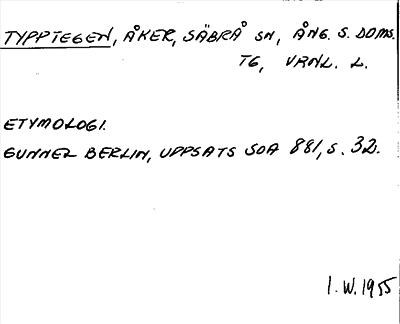 TYPPTEGEN, ÅKER, SÄBRÅ SN, ÅNG. S. DOMS.
TG, VRNL. L.
ETYMOLOGI.
GUNNEL BERLIN, UPPSATS SOA 881, S. 32.
I.W. 1955